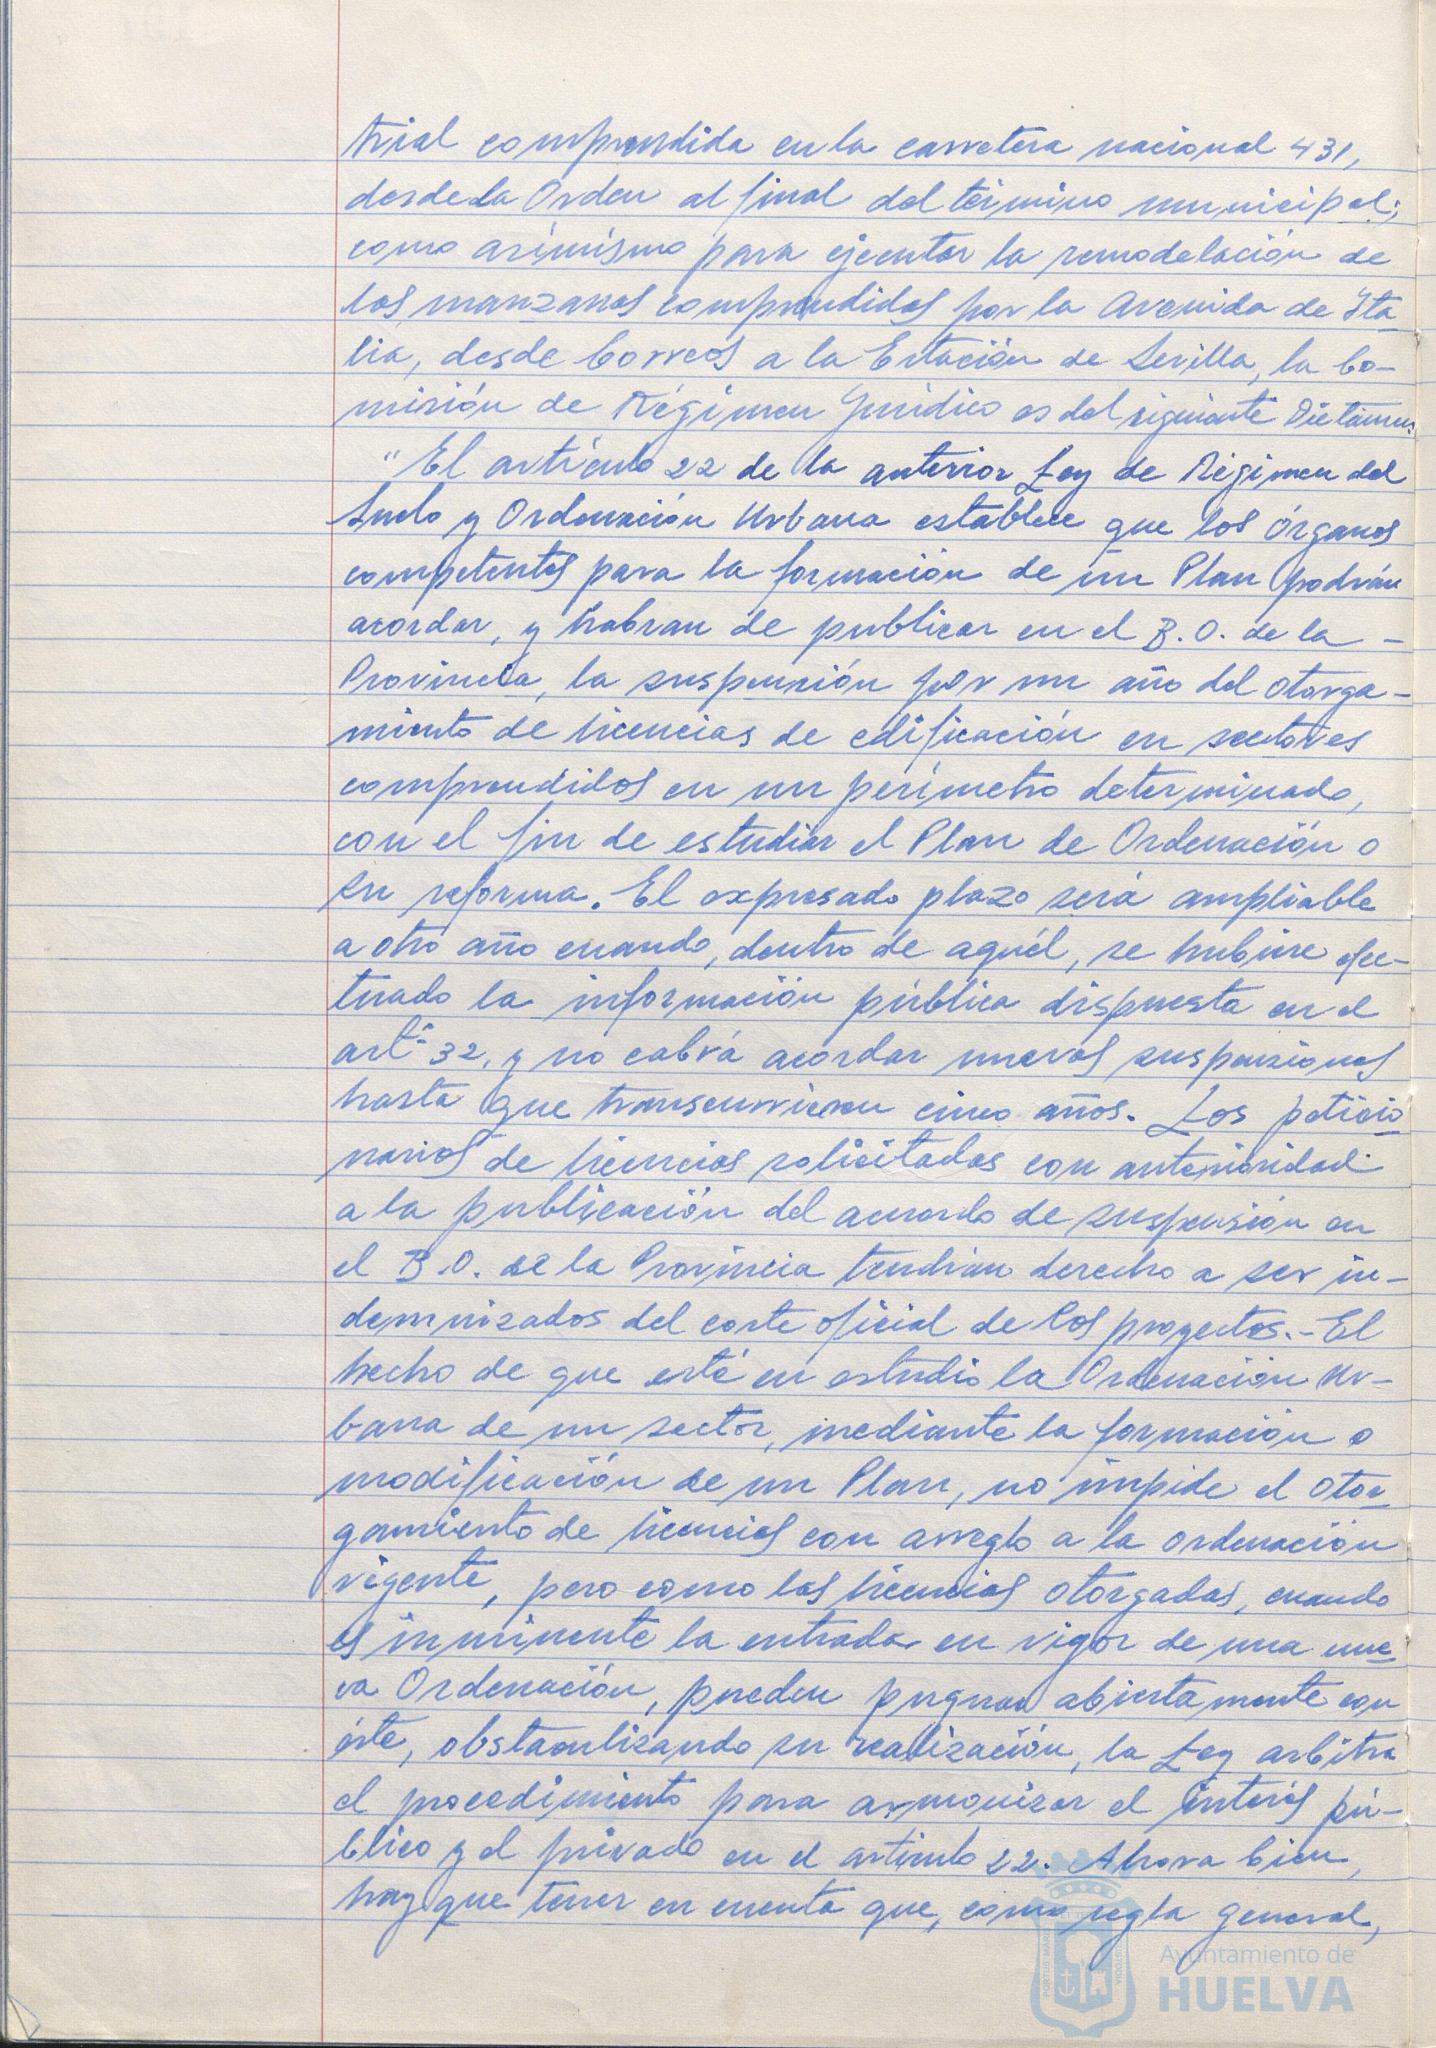 trial comprendida en la carretera nacional 431,
desde la Orden al final del término municipal;
como asimismo para ejecutar la remodelación de
las manzanas comprendidas por la Avenida de Ita-
lia, desde Correos a la Estación de Sevilla, la Co-
misión de Régimen Jurídico es del siguiente Dictamen:
"El artículo 22 de la anterior Ley de Régimen del
Suelo y Ordenación Urbana establece que los órganos
competentes para la formación de un Plan podrán
acordar, y habrán de publicar en el B.O. de la -
Provincia, la suspensión por un año del otorga-
miento de licencias de edificación en sectores
comprendidos en un perímetro determinado,
con el fin de estudiar el Plan de Ordenación o
su reforma. El expresado plazo será ampliable
a otro año cuando, dentro de aquél, se hubiere efec-
tuado la información pública dispuesta en el
artº 32, y no cabrá acordar nuevas suspensiones
hasta que transcurrieren cinco años. Los peticio-
narios de licencias solicitadas con anterioridad
a la publicación del acuerdo de suspensión en
el B.O. de la Provincia tendrán derecho a ser in-
demnizados del coste oficial de los proyectos.- El
hecho de que esté en estudio la Ordenación Ur-
bana de un sector, mediante la formación o
modificación de un Plan, no impide el otor-
gamiento de licencias con arreglo a la ordenación
vigente, pero como las licencias otorgadas, cuando
es inminente la entrada en vigor de una nue-
va Ordenación, pueden pugnar abiertamente con
éste, obstaculizando su realización, la Ley arbitra
el procedimiento para armonizar el interés pú-
blico y el privado en el artículo 22. Ahora bien,
hay que tener en cuenta que, como regla general,
Ayuntamiento de
HUELVA